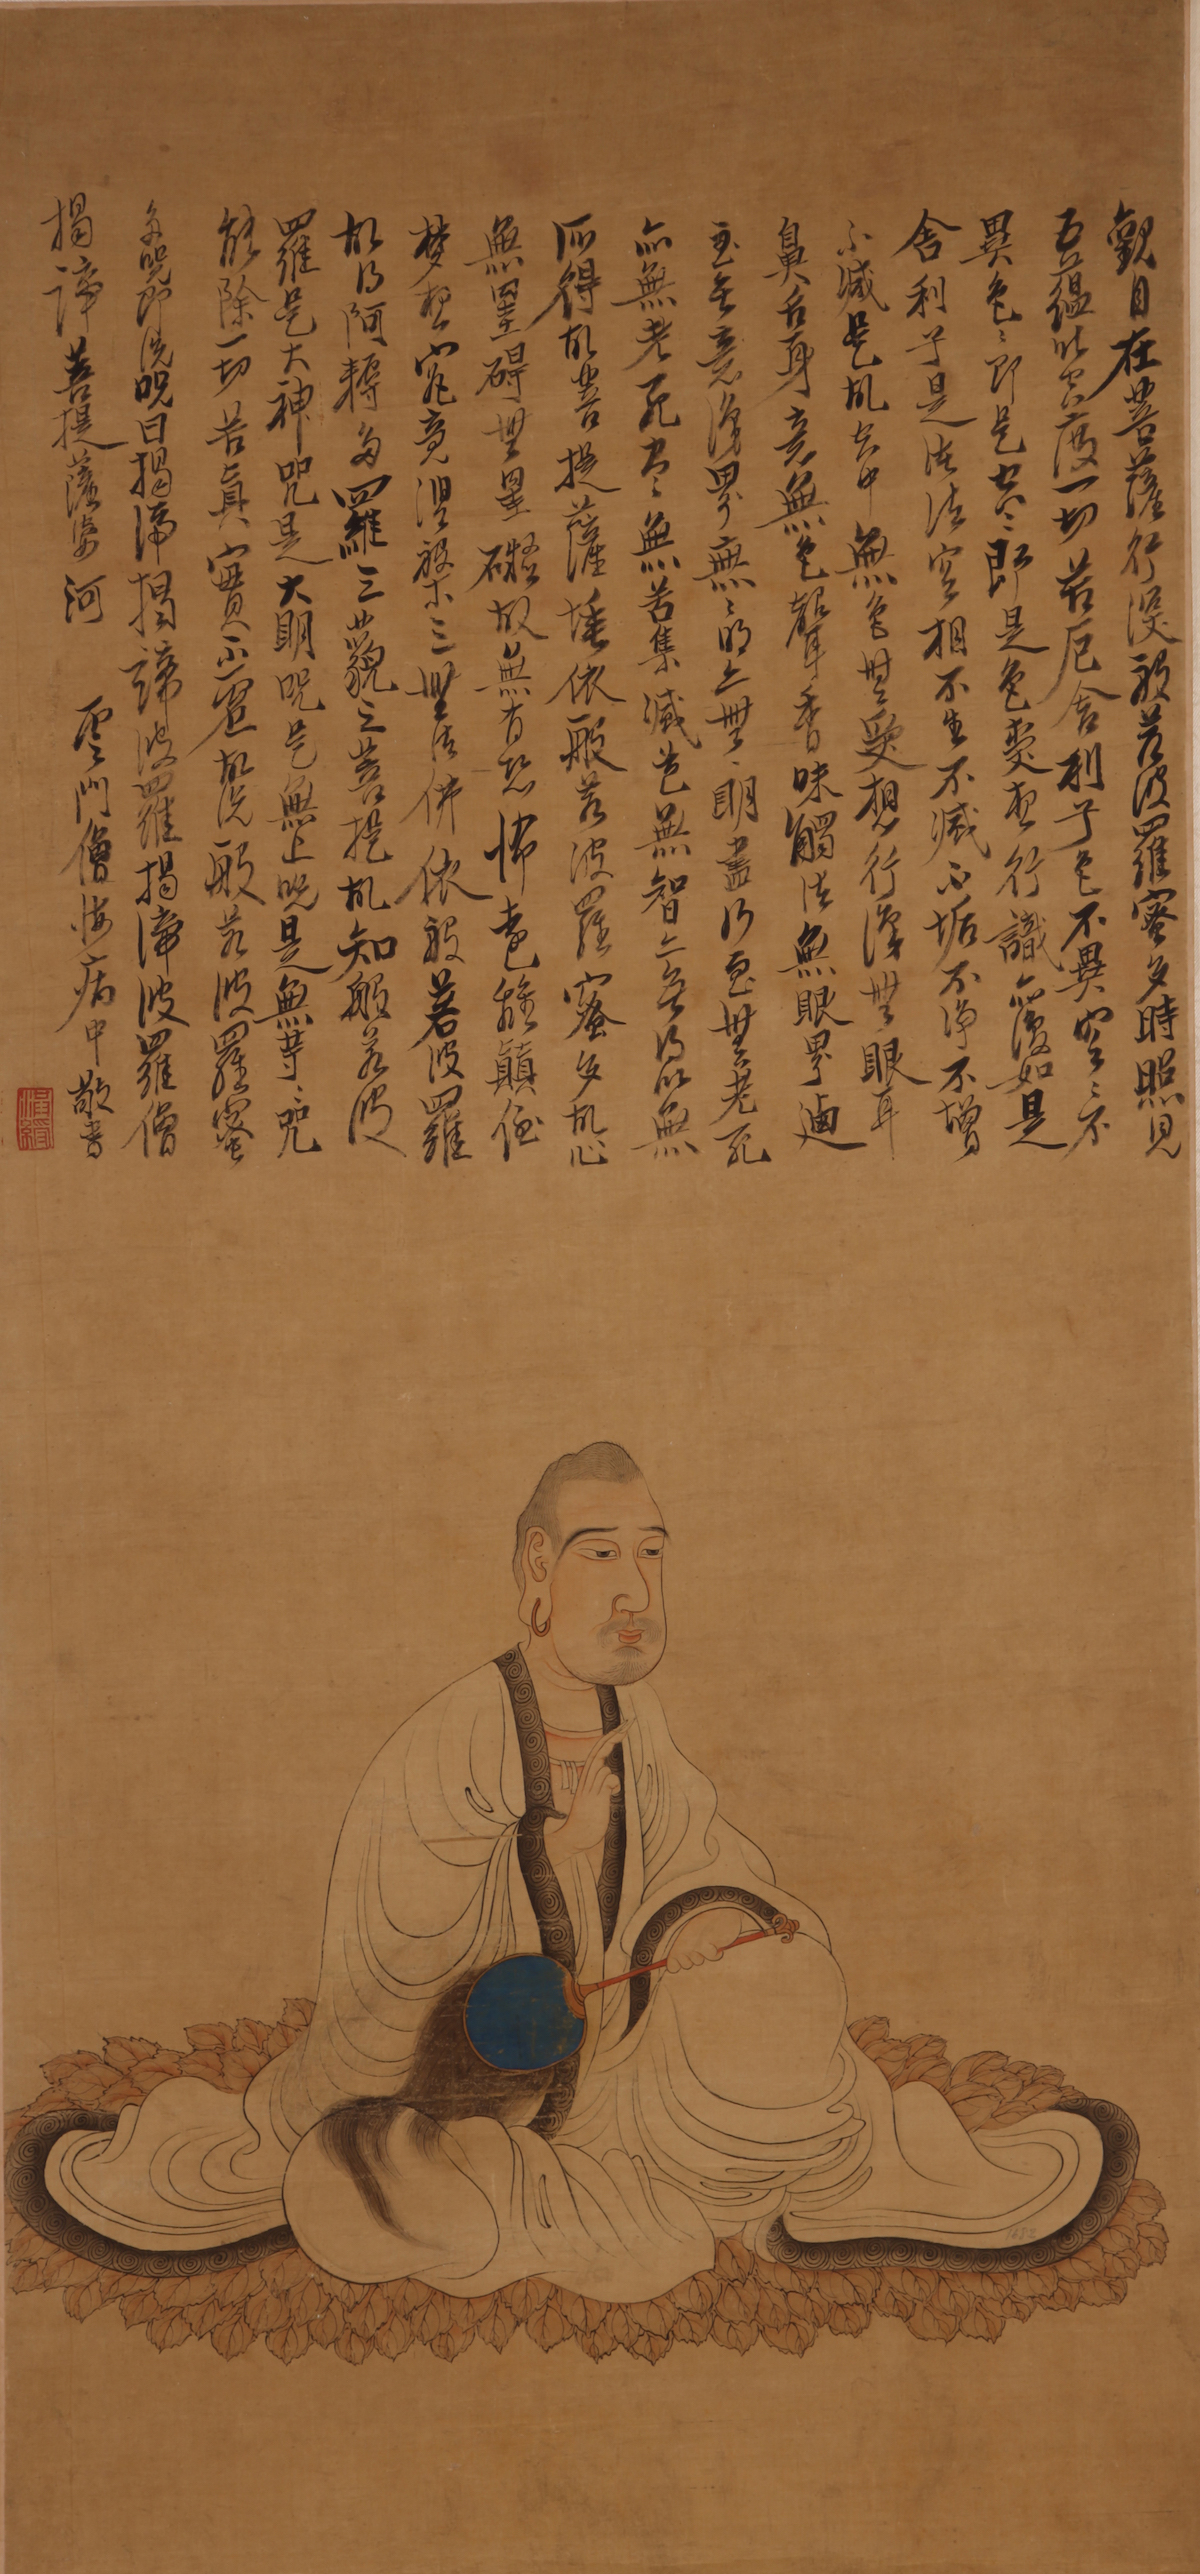 觀自在菩薩行深般若波羅蜜多時照見
五蘊皆空度一切苦厄舍利子色不異空〻不
異色〻即是空〻即是色受想行識亦復如是
舍利子是法法空相不生不滅不垢不淨不增
不減是故空中無色無受想行識無眼耳
鼻舌身意無色聲香味觸法無眼界乃
至無意識界無〻明亦無〻明盡乃至無老死
亦無老死盡〻無苦集滅道無智亦無得以無
所得故菩提薩埵依般若波羅蜜多故心
無罣礙無罣礙故無有恐怖遠離顛倒
夢想究竟涅槃三世諸佛依般若波羅
故得阿耨多羅三藐三菩提故知般若波
羅是大神咒是大明咒是無上咒是無等〻咒
能除一切苦真實不虛故說般若波羅蜜
多咒即說咒曰揭諦揭諦波羅揭諦波羅僧
揭諦菩提薩婆訶 雲門僧悔病中敬書